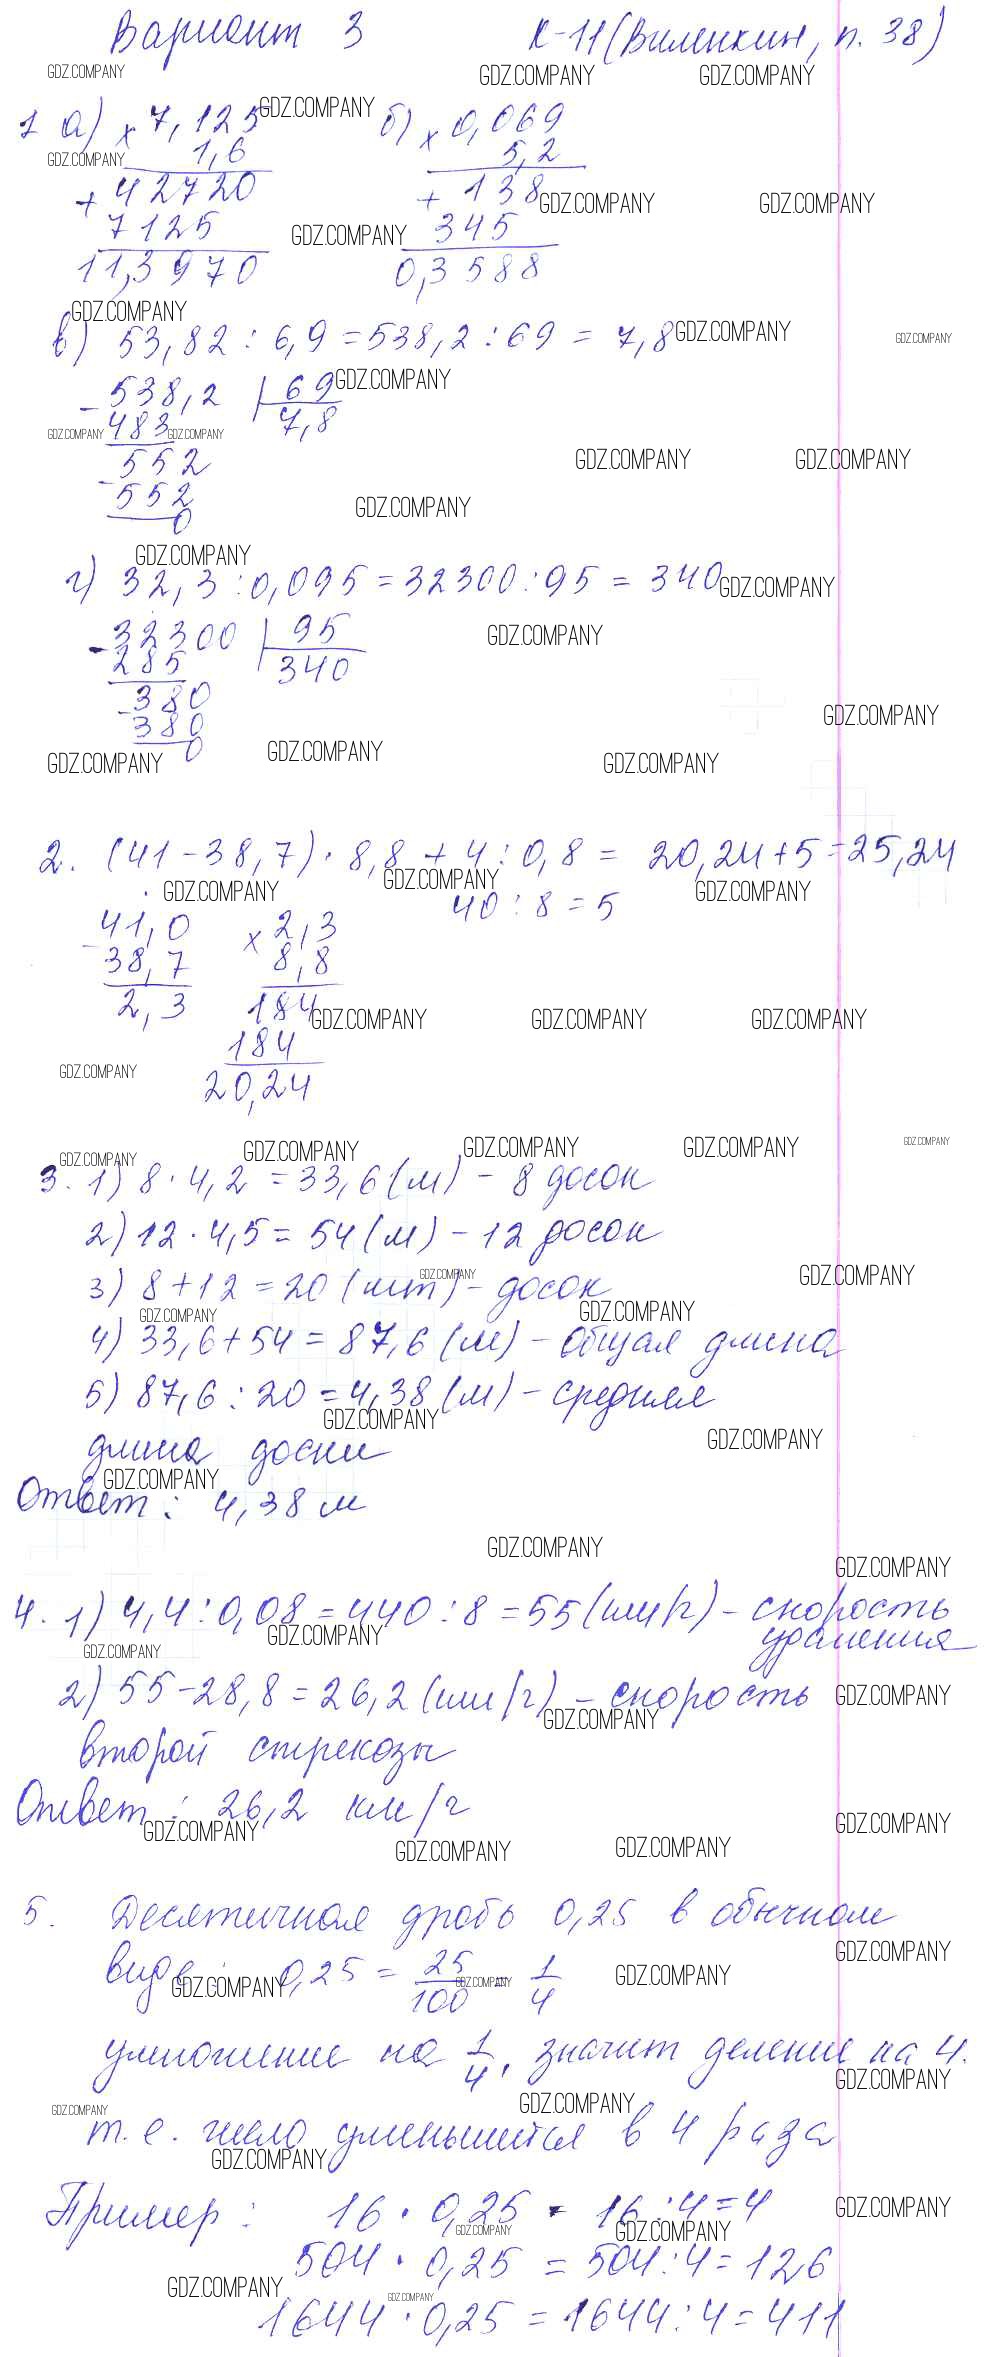 Вариант 3 К-11 (Виленкин, п. 38)
1 а) × 7,125 б) × 0,069
1,6 5,2
+ 42720 + 138
7125 345
11,3970 0,3588
в) 53,82 : 6,9 = 538,2 : 69 = 7,8
- 538,2 | 69
483 7,8
- 552
552
0
г) 32,3 : 0,095 = 32300 : 95 = 340
- 32300 | 95
285 340
- 380
380
0
2. (41 - 38,7) · 8,8 + 4 : 0,8 = 20,24 + 5 = 25,24
40 : 8 = 5
- 41,0 × 2,3
38,7 8,8
2,3 184
184
20,24
3. 1) 8 · 4,2 = 33,6 (м) - 8 досок
2) 12 · 4,5 = 54 (м) - 12 досок
3) 8 + 12 = 20 (шт) - досок
4) 33,6 + 54 = 87,6 (м) - общая длина
5) 87,6 : 20 = 4,38 (м) - средняя
длина доски
Ответ: 4,38 м
4. 1) 4,4 : 0,08 = 440 : 8 = 55 (км/ч) - скорость
удаления
2) 55 - 28,8 = 26,2 (км/ч) - скорость
второй стрекозы
Ответ: 26,2 км/ч
5. Десятичная дробь 0,25 в обычном
виде: 0,25 = 25/100 = 1/4
умножение на 1/4, значит деление на 4.
т.е. число уменьшится в 4 раза
Пример: 16 · 0,25 = 16 : 4 = 4
504 · 0,25 = 504 : 4 = 126
1644 · 0,25 = 1644 : 4 = 411
GDZ.COMPANY